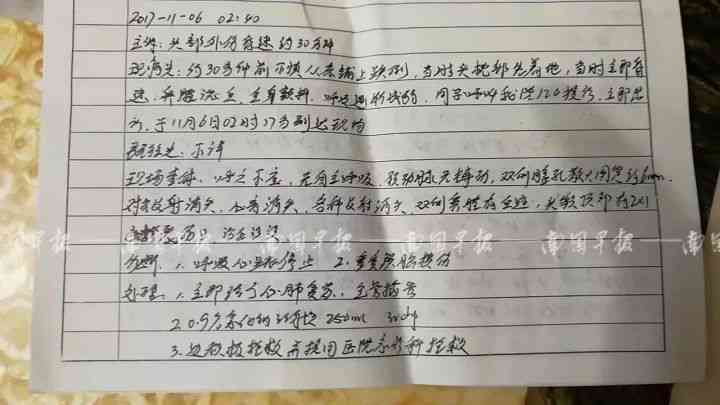 2017-11-06 02:40
主诉: 头部外伤昏迷约30分钟
现病史: 约30分钟前不慎从床铺上跌倒, 当时头枕部先着地, 当时立即昏
迷, 鼻腔流血, 全身, 呼吸, 同学呼叫我院120接诊, 立即出
诊, 于11月6日02时17分到达现场
既往史: 不详
现场查体: 呼之不应, 无自主呼吸, 颈动脉无搏动, 双侧瞳孔散大固定约6mm,
对光反射消失, 心音消失, 各种反射消失, 双侧鼻腔有血迹, 头颅顶部有2X1
南国早报 南国早报 南国早报
诊断 1. 呼吸心跳停止 2. 重度颅脑损伤
处理: 1. 立即给予心肺复苏,
2. 0.9%氯化钠注射液 250ml
3. 边抢救 我院急诊科抢救